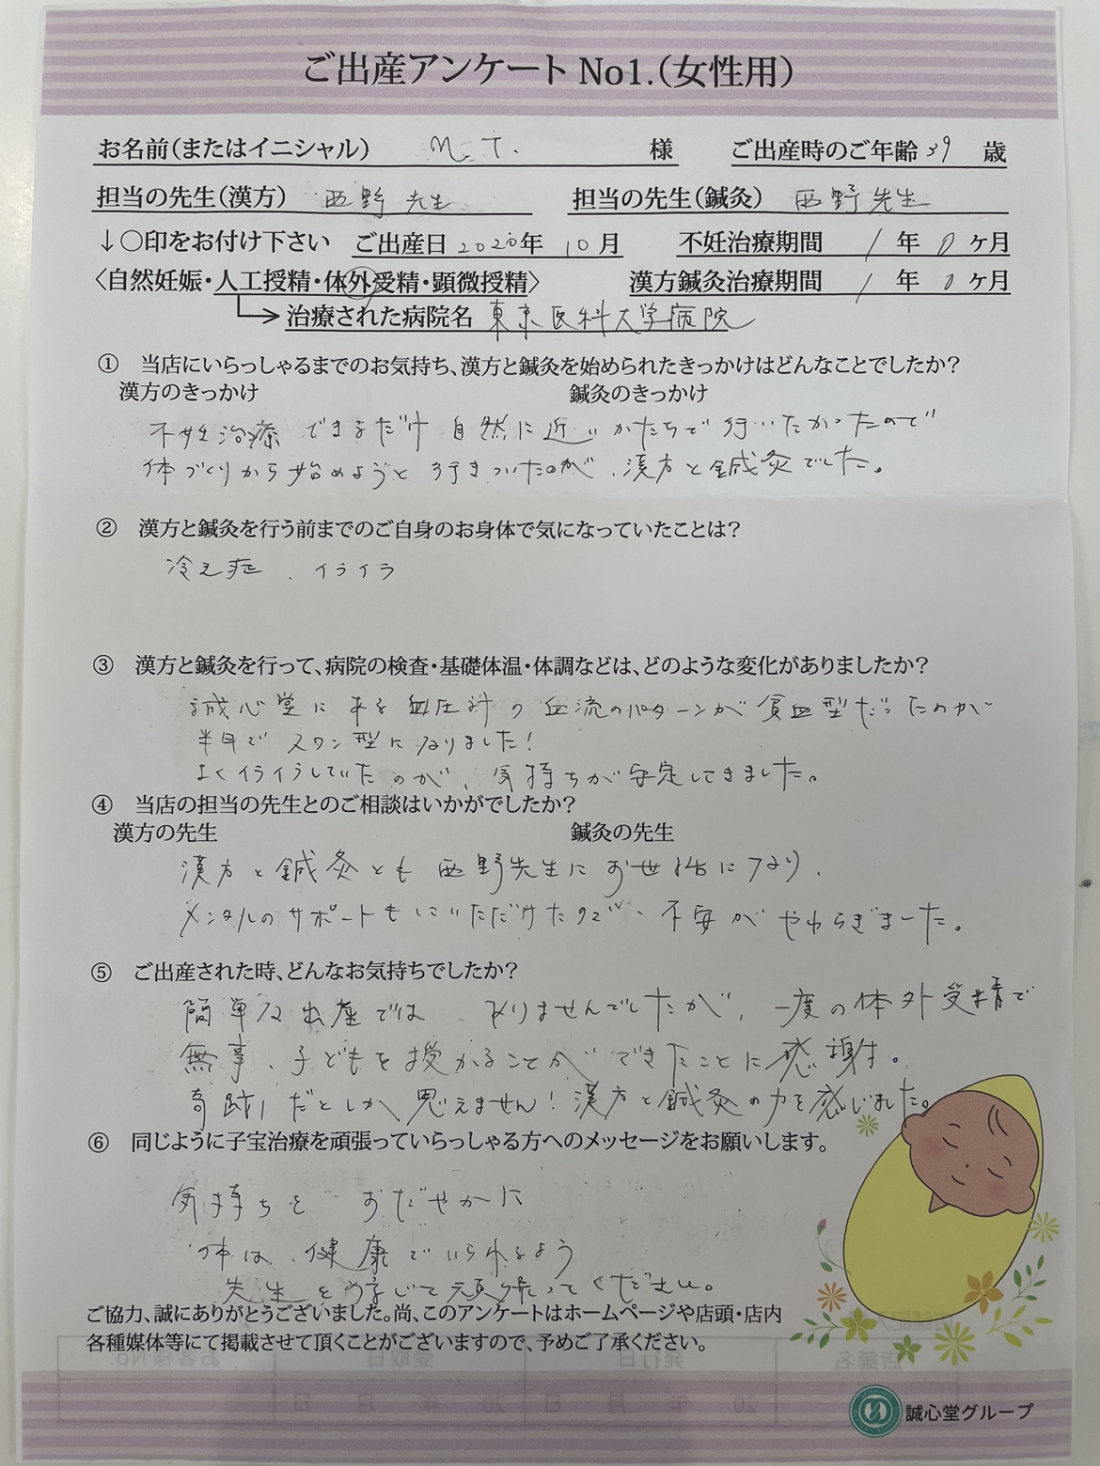 ご出産アンケート No1.(女性用)
お名前(またはイニシャル) M.T. 様 ご出産時のご年齢 39 歳
担当の先生(漢方) 西野先生 担当の先生(鍼灸) 西野先生
↓○印をお付け下さい ご出産日 2020年 10月 不妊治療期間 1年 0ヶ月
〈自然妊娠・人工授精・体外受精・顕微授精〉 漢方鍼灸治療期間 1年 0ヶ月
治療された病院名 東京医科大学病院
① 当店にいらっしゃるまでのお気持ち、漢方と鍼灸を始められたきっかけはどんなことでしたか?
漢方のきっかけ 鍼灸のきっかけ
不妊治療できるだけ自然に近いかたちで行いたかったので
体づくりから始めようと行きついたのが、漢方と鍼灸でした。
② 漢方と鍼灸を行う前までのご自身のお身体で気になっていたことは?
冷え症、イライラ
③ 漢方と鍼灸を行って、病院の検査・基礎体温・体調などは、どのような変化がありましたか?
誠心堂にある血圧計の血流のパターンが貧血型だったのが
半月でスワン型になりました!
よくイライラしていたのが、気持ちが安定してきました。
④ 当店の担当の先生とのご相談はいかがでしたか?
漢方の先生 鍼灸の先生
漢方と鍼灸とも西野先生にお世話になり、
メンタルのサポートもしていただけたので、不安がやわらぎました。
⑤ ご出産された時、どんなお気持ちでしたか?
簡単な出産では、ありませんでしたが、一度の体外受精で
無事、子どもを授かることができたことに感謝。
奇跡だとしか思えません!漢方と鍼灸の力を感じました。
⑥ 同じように子宝治療を頑張っていらっしゃる方へのメッセージをお願いします。
気持ちをおだやかに
体は、健康でいられるよう
先生を信じて頑張ってください。
ご協力、誠にありがとうございました。尚、このアンケートはホームページや店頭・店内
各種媒体等にて掲載させて頂くことがございますので、予めご了承ください。
誠心堂グループ